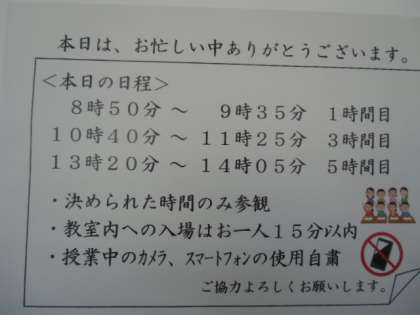 本日は、お忙しい中ありがとうございます。
＜本日の日程＞
８時５０分 ～ ９時３５分 １時間目
１０時４０分 ～ １１時２５分 ３時間目
１３時２０分 ～ １４時０５分 ５時間目
・決められた時間のみ参観
・教室内への入場はお一人１５分以内
・授業中のカメラ、スマートフォンの使用自粛
ご協力よろしくお願いします。